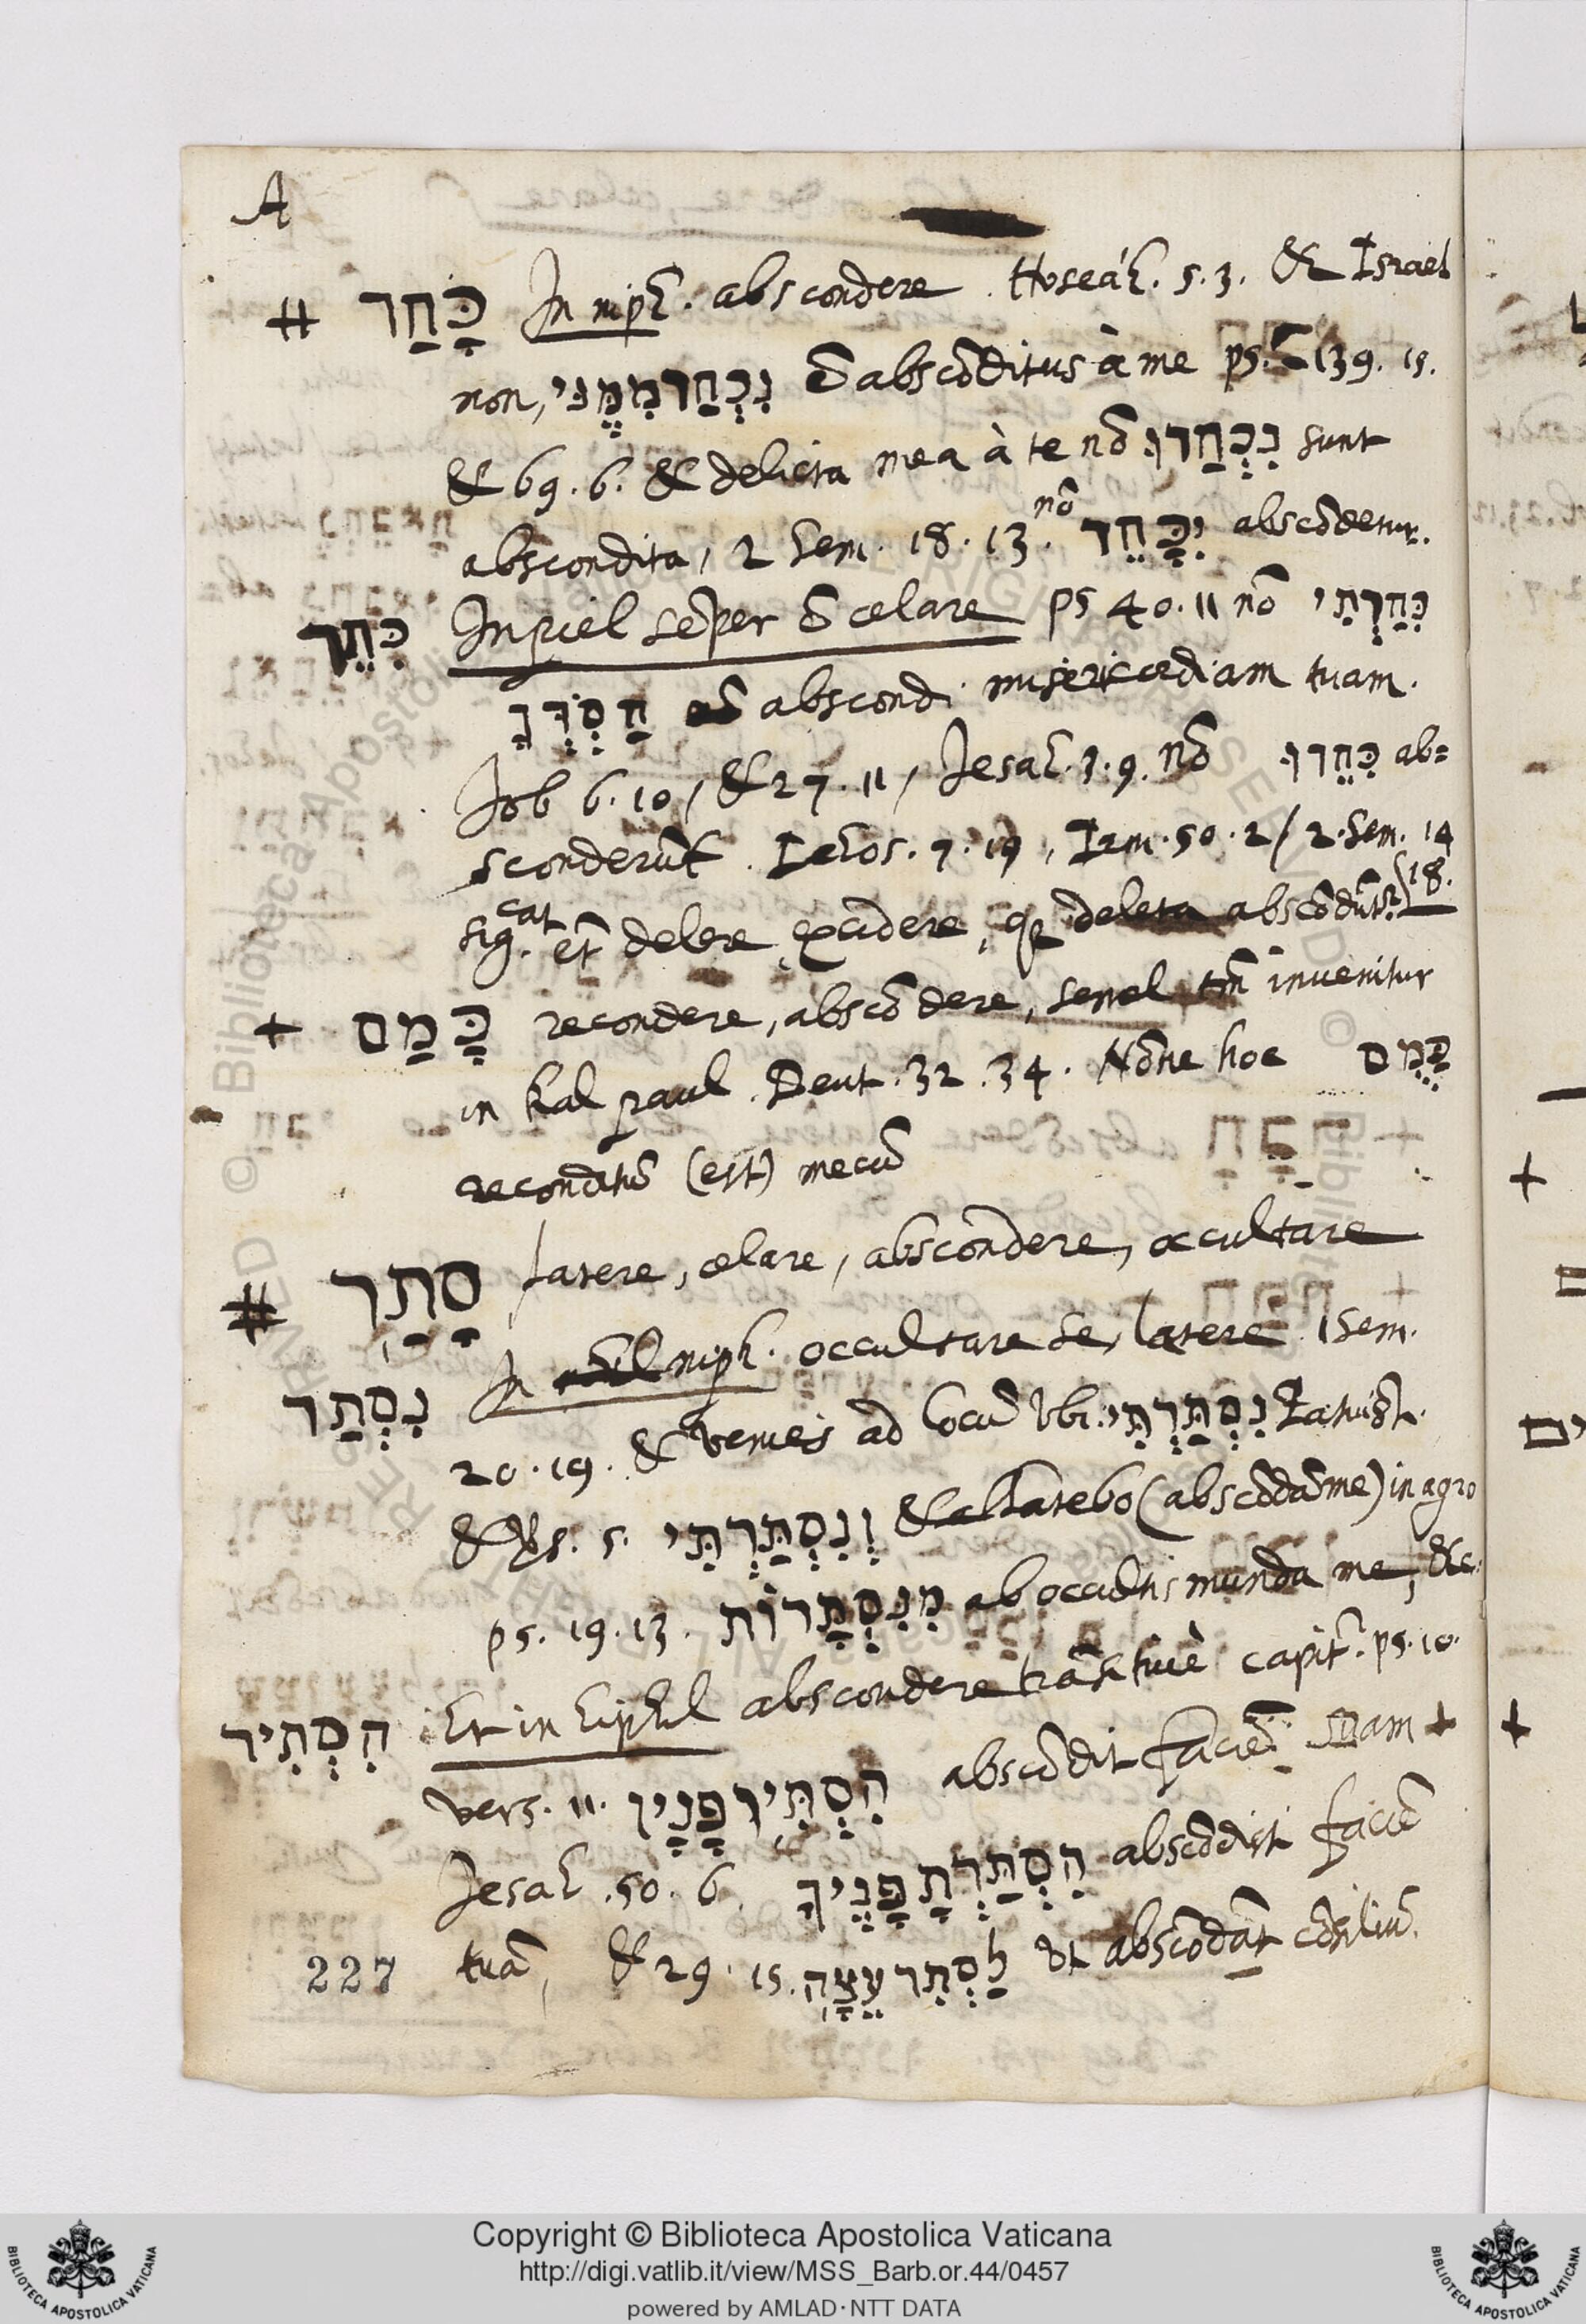 A
# כָּחַד In niph̃. abscondere. Hoseah̃. 5.3. & Israel
non, נִכְחַד מִמֶּנִּי ẽ abscõditus à me ps. 139. 15.
& 69. 6. & delicta mea à te nõ נִכְחַדוּ sunt
abscondita, 2 Sem. 18. 13. nõ יִכָּחֵד abscõdetur.
כִּחֵד In piel sẽper ẽ celare ps 40. 11 nõ כִּחַדְתִּי
חַסְדְּךָ abscondi misericordiam tuam.
Job 6. 10, & 27. 11, Jesah̃. 3. 9. nõ כִּחֵדוּ ab=
sconderũt. Iehos. 7. 19, Irm. 50. 2 / 2. Sem. 14
18.
sig.cat et̃ delere, excidere, abscõdũt
+ כָּמַס recondere, abscõdere, semel tm̃ invenitur
in kal paul. Deut. 32. 34. Nõne hoc כָּמֻס
reconditũ (est) mecũ
# סָתַר latere, celare, abscondere, occultare
נִסְתַּר In niph̃. occultare se, latere 1 Sem.
20. 19. & venies ad locũ ubi נִסְתַּרְתִּי
& 5. וְנִסְתַּרְתִּי & latebo (abscõdã me) in agro
ps. 19. 13. מִנִּסְתָּרוֹת ab occultis munda me, &c.
הִסְתִּיר Et in hiphil abscondere trãsitivè capit. ps. 10.
vers. 11. הִסְתִּיר פָּנָיו abscõdit faciẽ suam +
Jesah̃. 50. 6. הִסְתַּרְתָּ פָּנֶיךָ abscõdisti faciẽ
227 tuã, & 29. 15. לַסְתִּר עֵצָה ut abscõdãt cõsiliũ.
+
+
Copyright © Biblioteca Apostolica Vaticana
http://digi.vatlib.it/view/MSS_Barb.or.44/0457
powered by AMLAD·NTT DATA
BIBLIOTECA APOSTOLICA VATICANA
BIBLIOTECA APOSTOLICA VATICANA